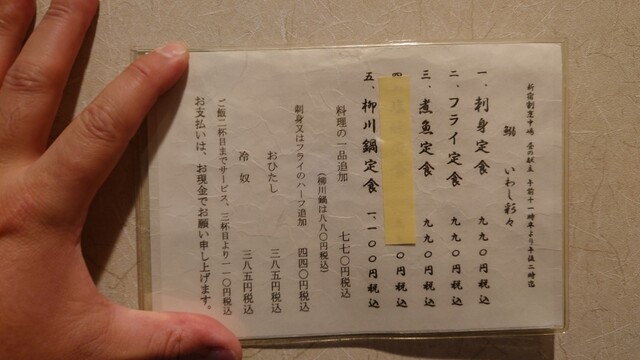 新宿割烹中嶋 昼の献立 午前十一時半より午後二時迄
鰯 いわし彩々
一、刺身定食 九九〇円税込
二、フライ定食 九九〇円税込
三、煮魚定食 九九〇円税込
四、 〇円税込
五、柳川鍋定食 一、一〇〇円税込
料理の一品追加 七七〇円税込
(柳川鍋は八八〇円税込)
刺身又はフライのハーフ追加 四四〇円税込
おひたし 三八五円税込
冷奴 三八五円税込
ご飯二杯目までサービス、三杯目より一一〇円税込
お支払いは、お現金でお願い申し上げます。